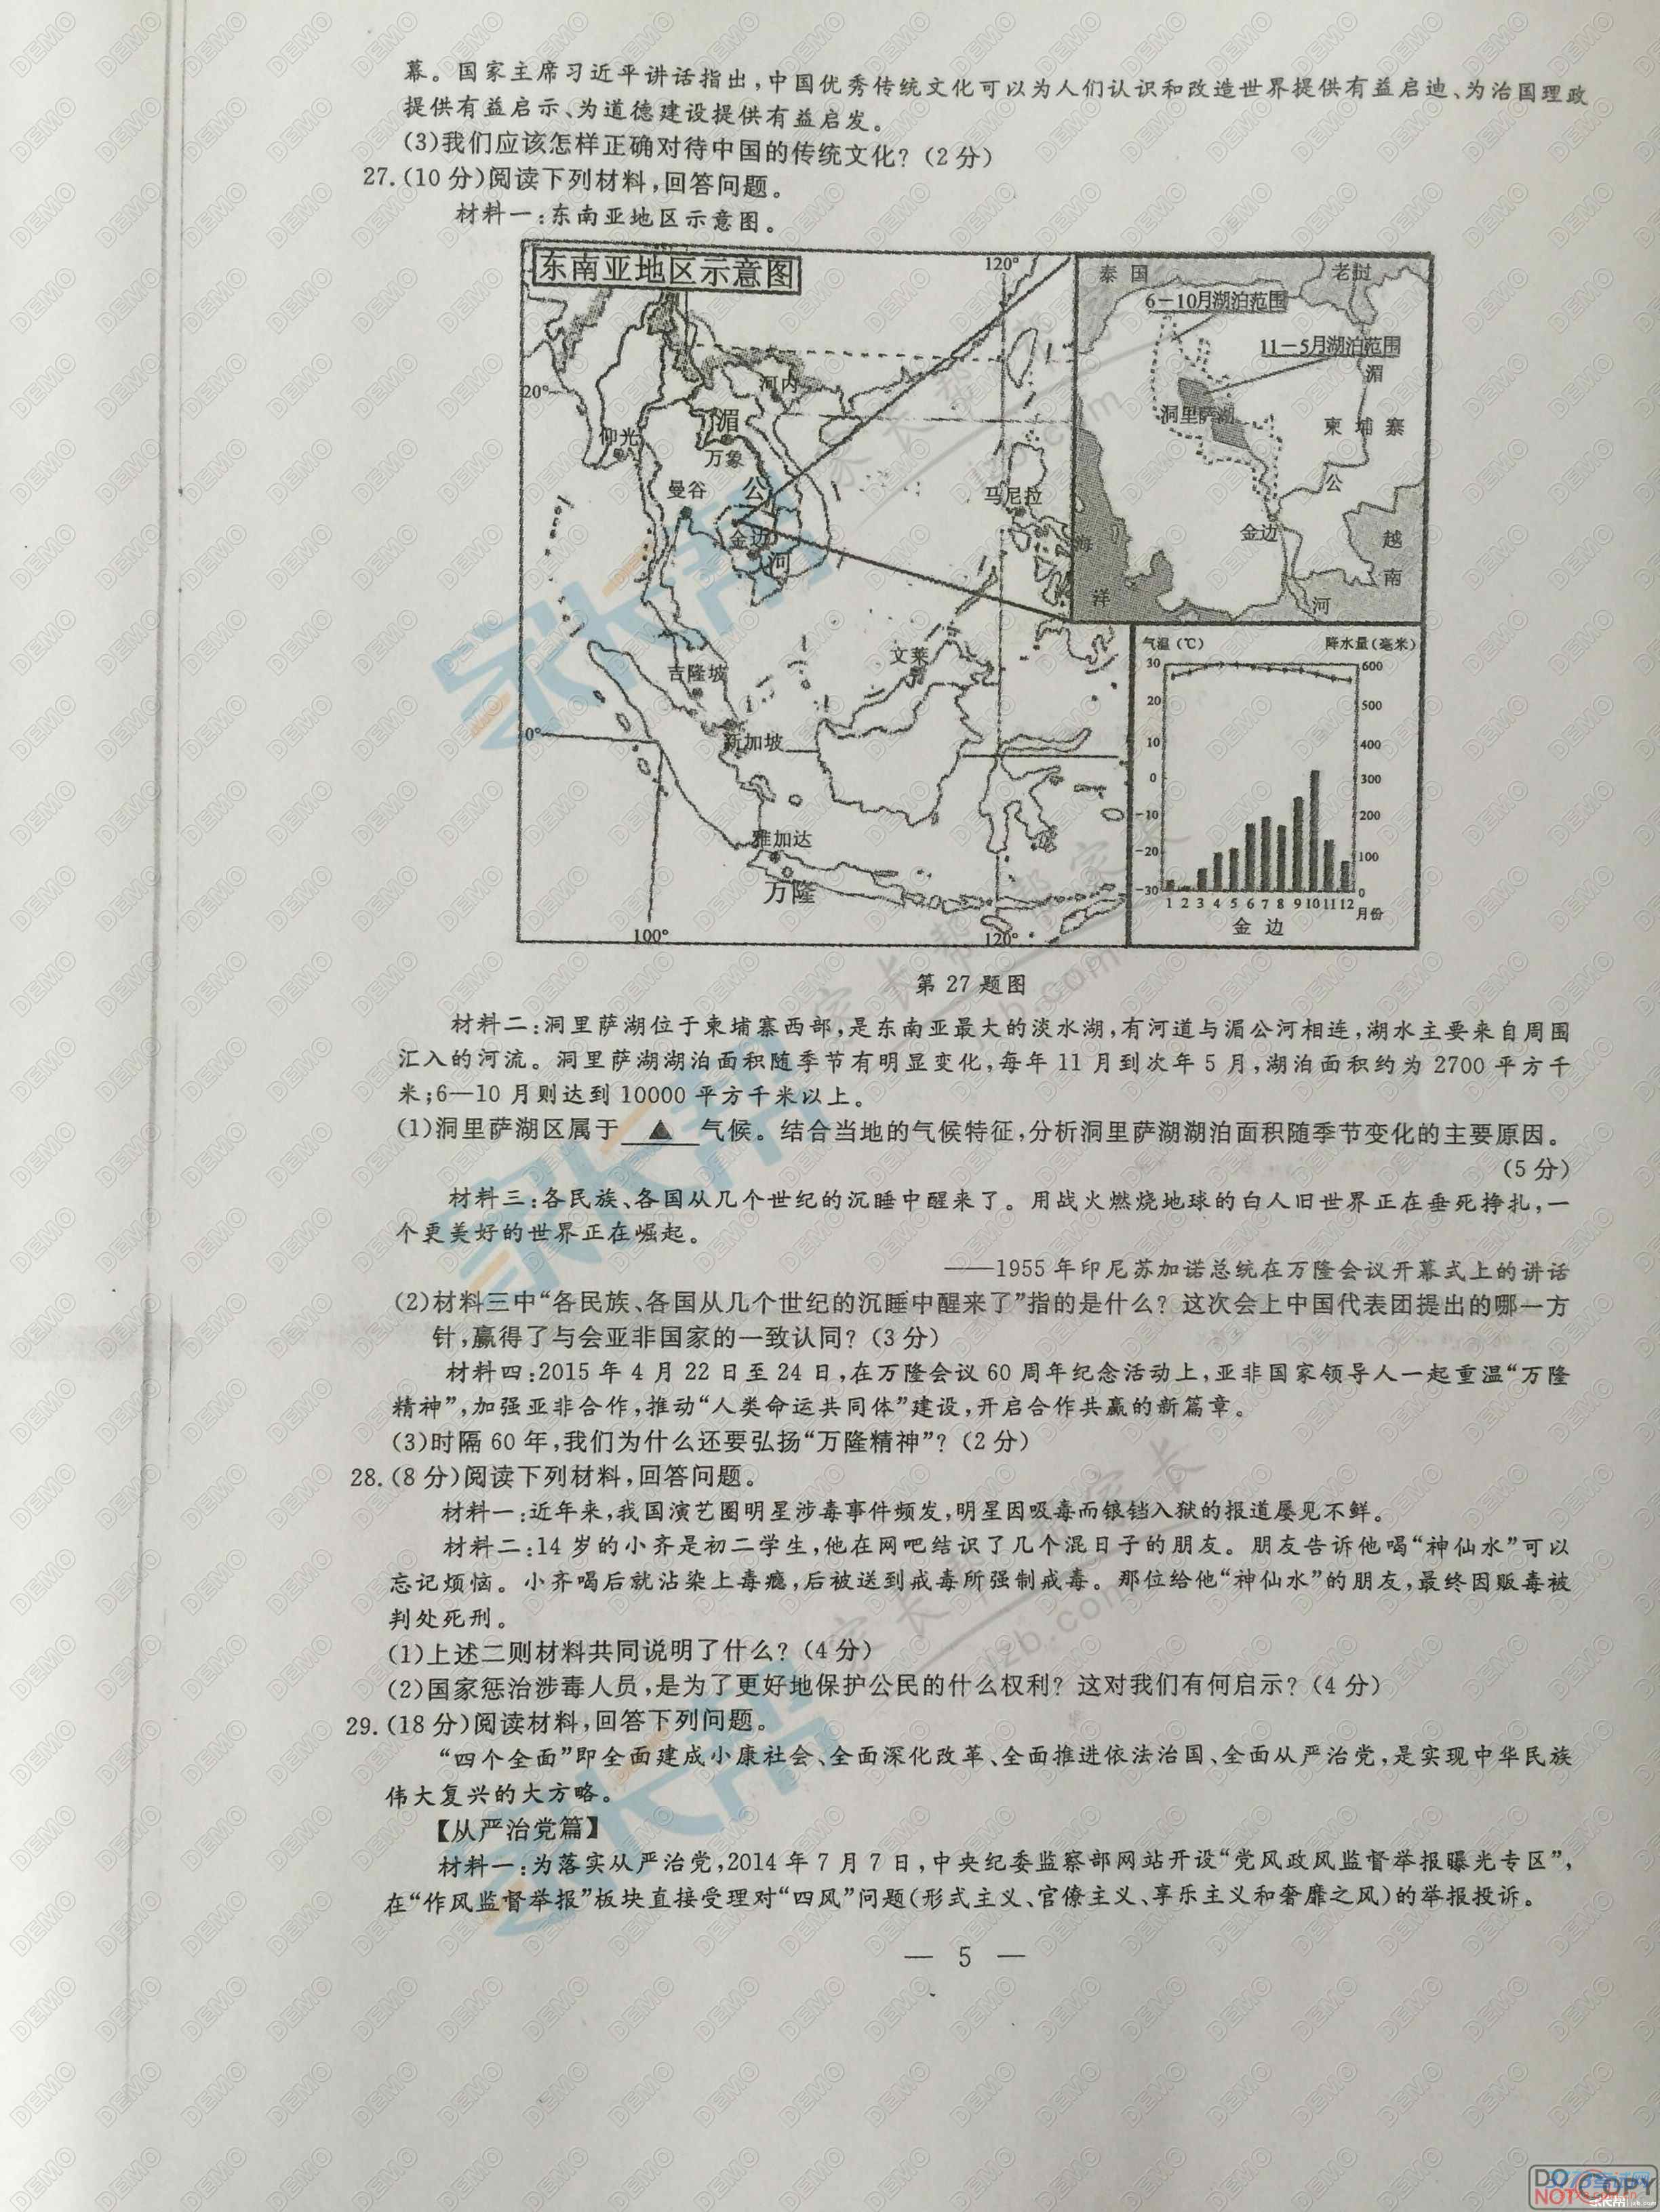 幕。国家主席习近平讲话指出，中国优秀传统文化可以为人们认识和改造世界提供有益启迪、为治国理政
提供有益启示、为道德建设提供有益启发。
(3)我们应该怎样正确对待中国的传统文化？(2分)
27.(10分)阅读下列材料，回答问题。
材料一：东南亚地区示意图。
东南亚地区示意图
120°
泰国
老挝
6－10月湖泊范围
11－5月湖泊范围
湄
20°
河内
洞里萨湖
柬埔寨
仰光
湄
万象
曼谷
公
马尼拉
公
金边
金边
海
越
河
南
洋
河
文莱
吉隆坡
气温(℃)
降水量(毫米)
30
600
20
500
0°
新加坡
10
400
0
300
-10
200
雅加达
-20
100
万隆
-30
0
1 2 3 4 5 6 7 8 9 10 11 12
月份
100°
120°
金边
第27题图
材料二：洞里萨湖位于柬埔寨西部，是东南亚最大的淡水湖，有河道与湄公河相连，湖水主要来自周围
汇入的河流。洞里萨湖湖泊面积随季节有明显变化，每年11月到次年5月，湖泊面积约为2700平方千
米；6—10月则达到10000平方千米以上。
(1)洞里萨湖区属于▲气候。结合当地的气候特征，分析洞里萨湖湖泊面积随季节变化的主要原因。
(5分)
材料三：各民族、各国从几个世纪的沉睡中醒来了。用战火燃烧地球的白人旧世界正在垂死挣扎，一
个更美好的世界正在崛起。
——1955年印尼苏加诺总统在万隆会议开幕式上的讲话
(2)材料三中“各民族、各国从几个世纪的沉睡中醒来了”指的是什么？这次会上中国代表团提出的哪一方
针，赢得了与会亚非国家的一致认同？(3分)
材料四：2015年4月22日至24日，在万隆会议60周年纪念活动上，亚非国家领导人一起重温“万隆
精神”，加强亚非合作，推动“人类命运共同体”建设，开启合作共赢的新篇章。
(3)时隔60年，我们为什么还要弘扬“万隆精神”？(2分)
28.(8分)阅读下列材料，回答问题。
材料一：近年来，我国演艺圈明星涉毒事件频发，明星因吸毒而锒铛入狱的报道屡见不鲜。
材料二：14岁的小齐是初二学生，他在网吧结识了几个混日子的朋友。朋友告诉他喝“神仙水”可以
忘记烦恼。小齐喝后就沾染上毒瘾，后被送到戒毒所强制戒毒。那位给他“神仙水”的朋友，最终因贩毒被
判处死刑。
(1)上述二则材料共同说明了什么？(4分)
(2)国家惩治涉毒人员，是为了更好地保护公民的什么权利？这对我们有何启示？(4分)
29.(18分)阅读材料，回答下列问题。
“四个全面”即全面建成小康社会、全面深化改革、全面推进依法治国、全面从严治党，是实现中华民族
伟大复兴的大方略。
【从严治党篇】
材料一：为落实从严治党，2014年7月7日，中央纪委监察部网站开设“党风政风监督举报曝光专区”，
在“作风监督举报”板块直接受理对“四风”问题(形式主义、官僚主义、享乐主义和奢靡之风)的举报投诉。
— 5 —
DO NOT COPY